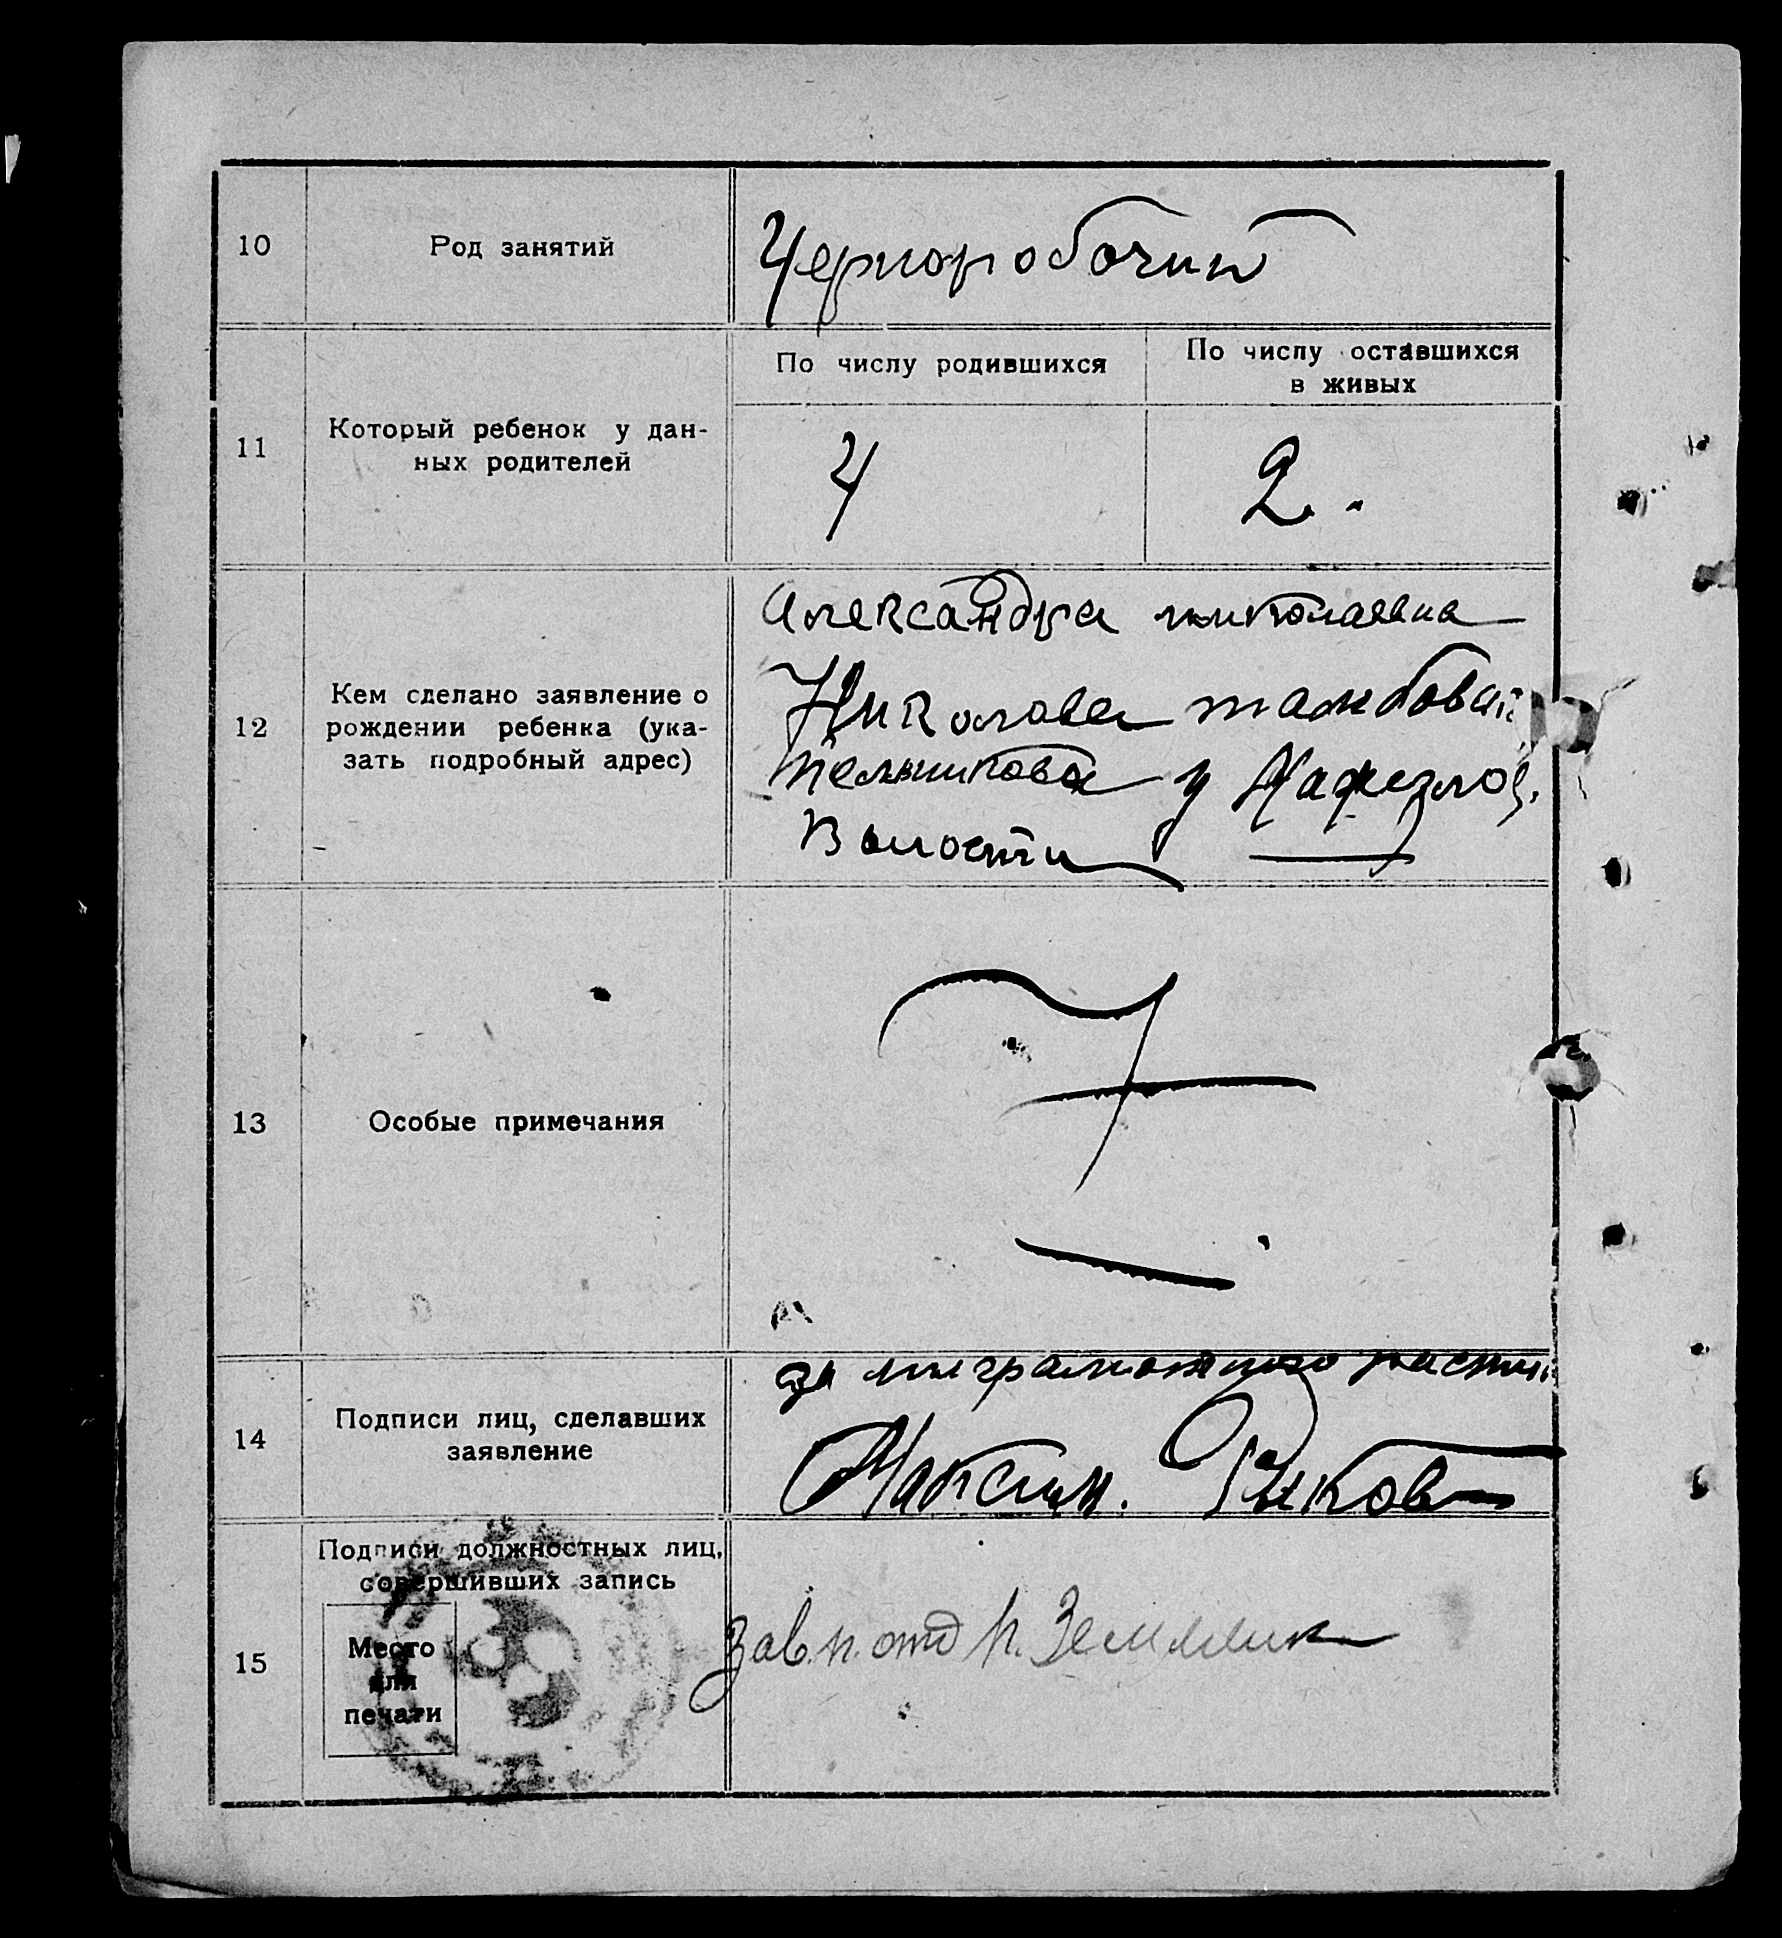 10
Род занятий
Черноробочий
11
Который ребенок у дан-
ных родителей
По числу родившихся
По числу оставшихся
в живых
4
2.
12
Кем сделано заявление о
рождении ребенка (ука-
зать подробный адрес)
Александра николаевна
Николова
у
Волости
13
Особые примечания
14
Подписи лиц, сделавших
заявление
за
Максим. Рыков
15
Подписи должностных лиц,
совершивших запись
Место
для
печати
Зав. п. отд